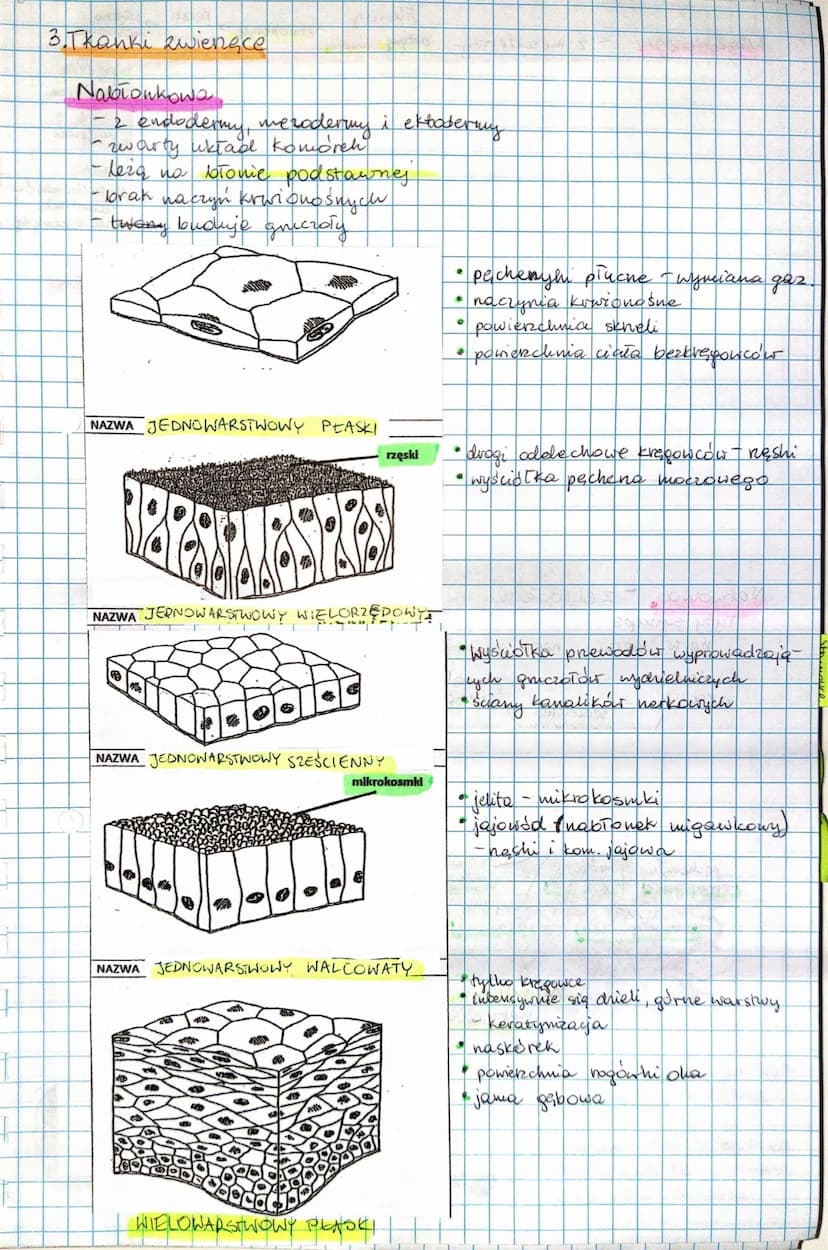 3. Tkanki zwierzęce
Nabłonkowa
- z endodermy, mezodermy i ektodermy
- zwarty układ komórek
- leżą na błonie podstawnej
- brak naczyń krwionośnych
- tworzy buduje gruczoły
• pęcherzyki płucne - wymiana gaz.
• naczynia krwionośne
• powierzchnia skrzeli
• powierzchnia ciała bezkręgowców
NAZWA JEDNOWARSTWOWY PŁASKI
rzęski
• drogi oddechowe kręgowców - rzęski
• wyściółka pęcherza moczowego
NAZWA JEDNOWARSTWOWY WIELORZĘDOWY
• wyściółka przewodów wyprowadzają-
cych gruczołów wydzielniczych
• ściany kanalików nerkowych
NAZWA JEDNOWARSTWOWY SZEŚCIENNY
mikrokosmki
• jelita - mikrokosmki
• jajowód (nabłonek migawkowy)
- rzęski i kom. jajowa
NAZWA JEDNOWARSTWOWY WALCOWATY
• tylko kręgowce
• intensywnie się dzieli, górne warstwy
- keratynizacja
• naskórek
• powierzchnia rogówki oka
• jama gębowa
WIELOWARSTWOWY PŁASKI